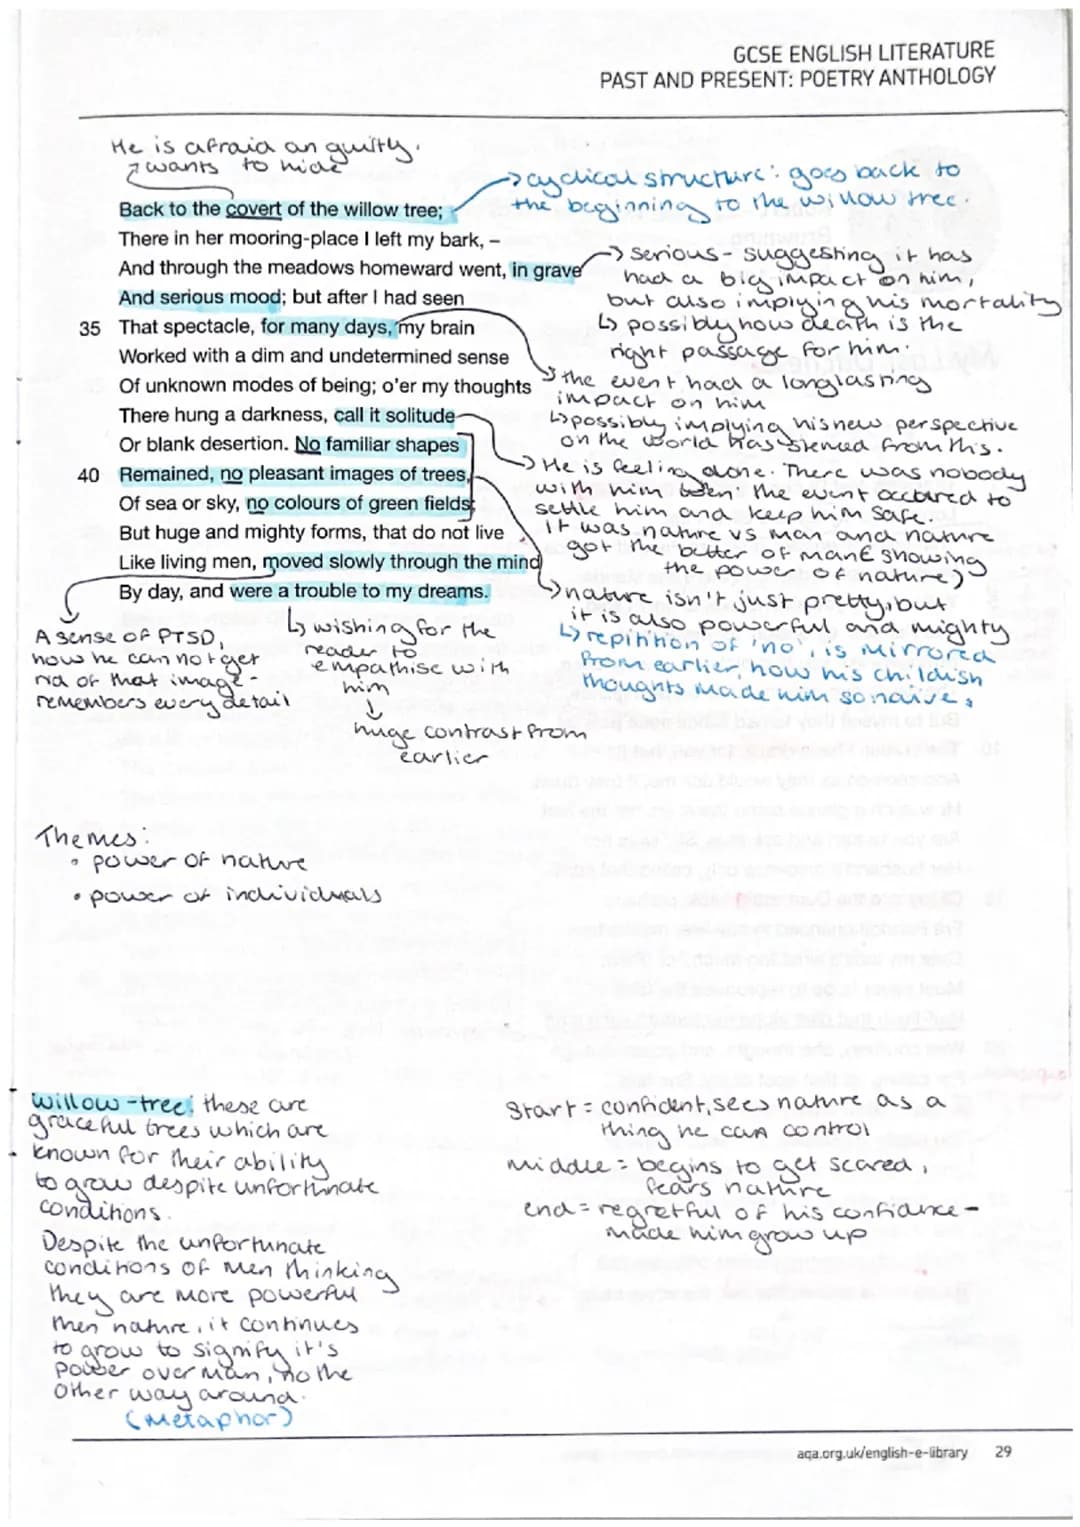 GCSE ENGLISH LITERATURE
PAST AND PRESENT: POETRY ANTHOLOGY
He is afraid an guilty.
wants to hide
→ cyclical structure: goes back to
the beginning to the willow tree.
Back to the covert of the willow tree;
There in her mooring-place I left my bark, –
And through the meadows homeward went, in grave
And serious mood; but after I had seen
35 That spectacle, for many days, my brain
Worked with a dim and undetermined sense
Of unknown modes of being; o'er my thoughts
There hung a darkness, call it solitude
Or blank desertion. No familiar shapes
40 Remained, no pleasant images of trees,
Of sea or sky, no colours of green fields;
But huge and mighty forms, that do not live
Like living men, moved slowly through the mind
By day, and were a trouble to my dreams.
→ serious - suggesting it has
had a big impact on him,
but also implying his mortality
↳ possibly how death is the
right passage for him.
the event had a longlasting
impact on him
↳ possibly implying his new perspective
on the world has stemed from this.
→ He is feeling alone. There was nobody
with him when the event occured to
settle him and keep him safe.
it was nature vs man and nature
got the better of man (showing
the power of nature)
→ nature isn't just pretty, but
it is also powerful and mighty
↳ repitition of 'no', is mirrored
from earlier, how his childish
thoughts made him so naive.
A sense of PTSD,
how he can not get
rid of that image -
remembers every detail
↳ wishing for the
reader to
empathise with
him
↓
huge contrast from
earlier
Themes:
• power of nature
• power of individuals
willow-tree: these are
graceful trees which are
known for their ability
to grow despite unfortunate
conditions.
Despite the unfortunate
conditions of men thinking
they are more powerful
then nature, it continues
to grow to signify it's
power over man, no the
other way around.
(Metaphor)
Start = confident, sees nature as a
thing he can control
middle = begins to get scared,
fears nature
end = regretful of his confidence -
made him grow up
aqa.org.uk/english-e-library 29